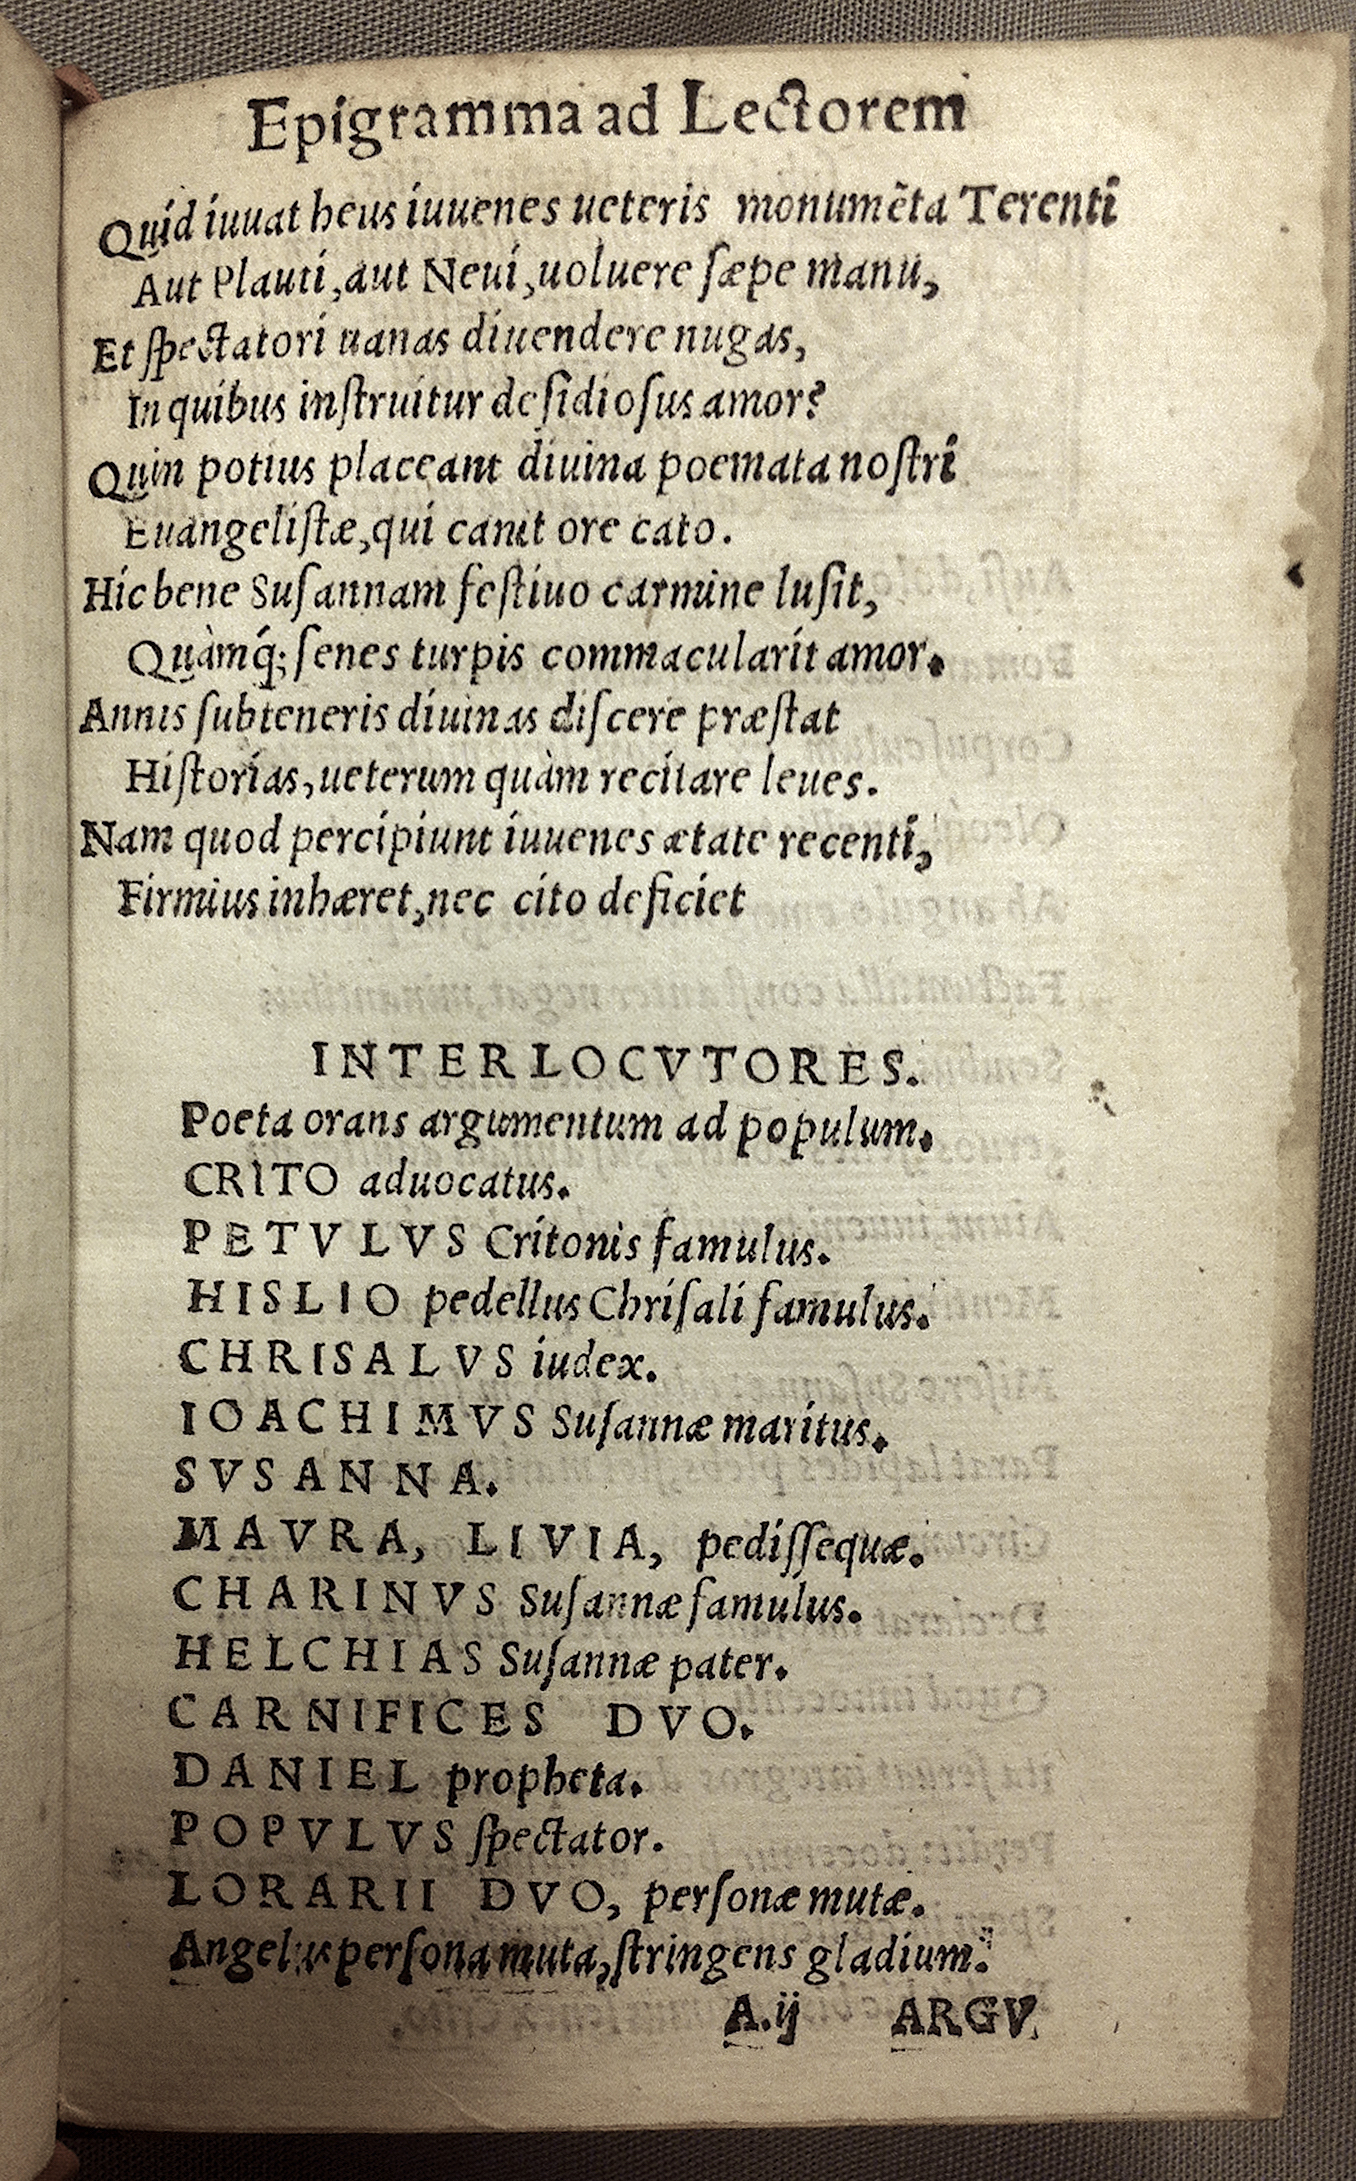 Epigramma ad Lectorem
Quid iuuat heus iuuenes ueteris monumẽta Terenti
Aut Plauti, aut Neui, uoluere sæpe manu,
Et spectatori uanas diuendere nugas,
In quibus instruitur desidiosus amor?
Quin potius placeant diuina poemata nostri
Euangelistæ, qui canit ore cato.
Hic bene Susannam festiuo carmine lusit,
Quàmq́; senes turpis commacularit amor.
Annis subteneris diuinas discere præstat
Historias, ueterum quàm recitare leues.
Nam quod percipiunt iuuenes ætate recenti,
Firmius inhæret, nec cito deficiet
INTERLOCVTORES.
Poeta orans argumentum ad populum.
CRITO aduocatus.
PETVLVS Critonis famulus.
HISLIO pedellus Chrisali famulus.
CHRISALVS iudex.
IOACHIMVS Susannæ maritus.
SVSANNA.
MAVRA, LIVIA, pedissequæ.
CHARINVS Susannæ famulus.
HELCHIAS Susannæ pater.
CARNIFICES DVO.
DANIEL propheta.
POPVLVS spectator.
LORARII DVO, personæ mutæ.
Angelus persona muta, stringens gladium.
A.ij ARGV